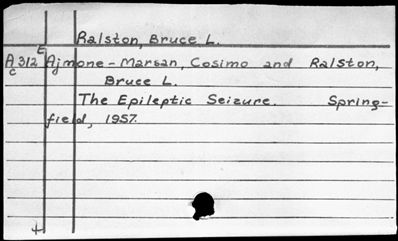 Ralston, Bruce L.
E
A312 Ajmone-Marsan, Cosimo and Ralston,
C Bruce L.
The Epileptic Seizure. Spring-
field, 1957.